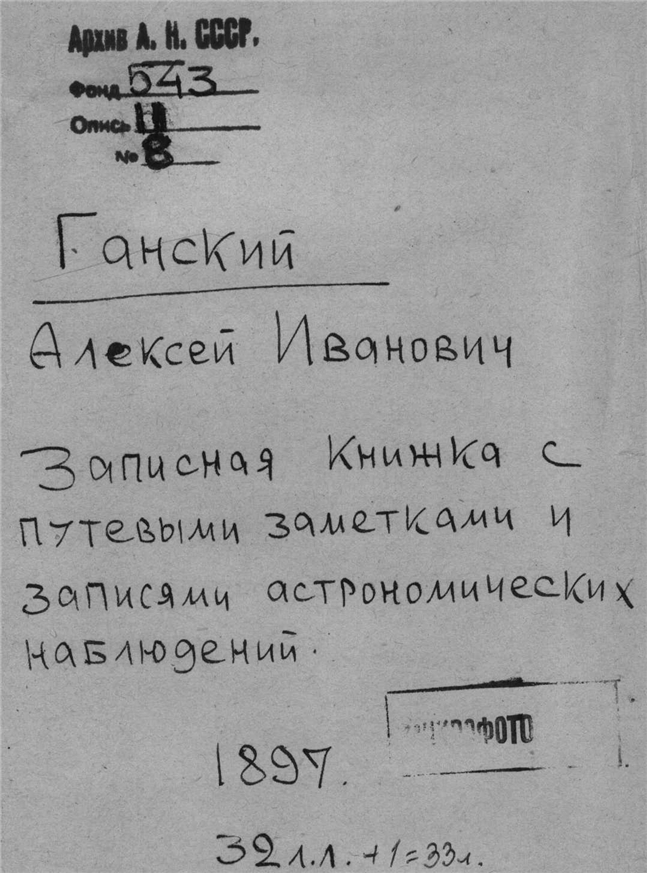 Архив А. Н. СССР.
Фонд 543
Опись II
№ 8
Ганский
Алексей Иванович
Записная книжка с
путевыми заметками и
записями астрономических
наблюдений.
1897.
32 л.л. +1=33л.